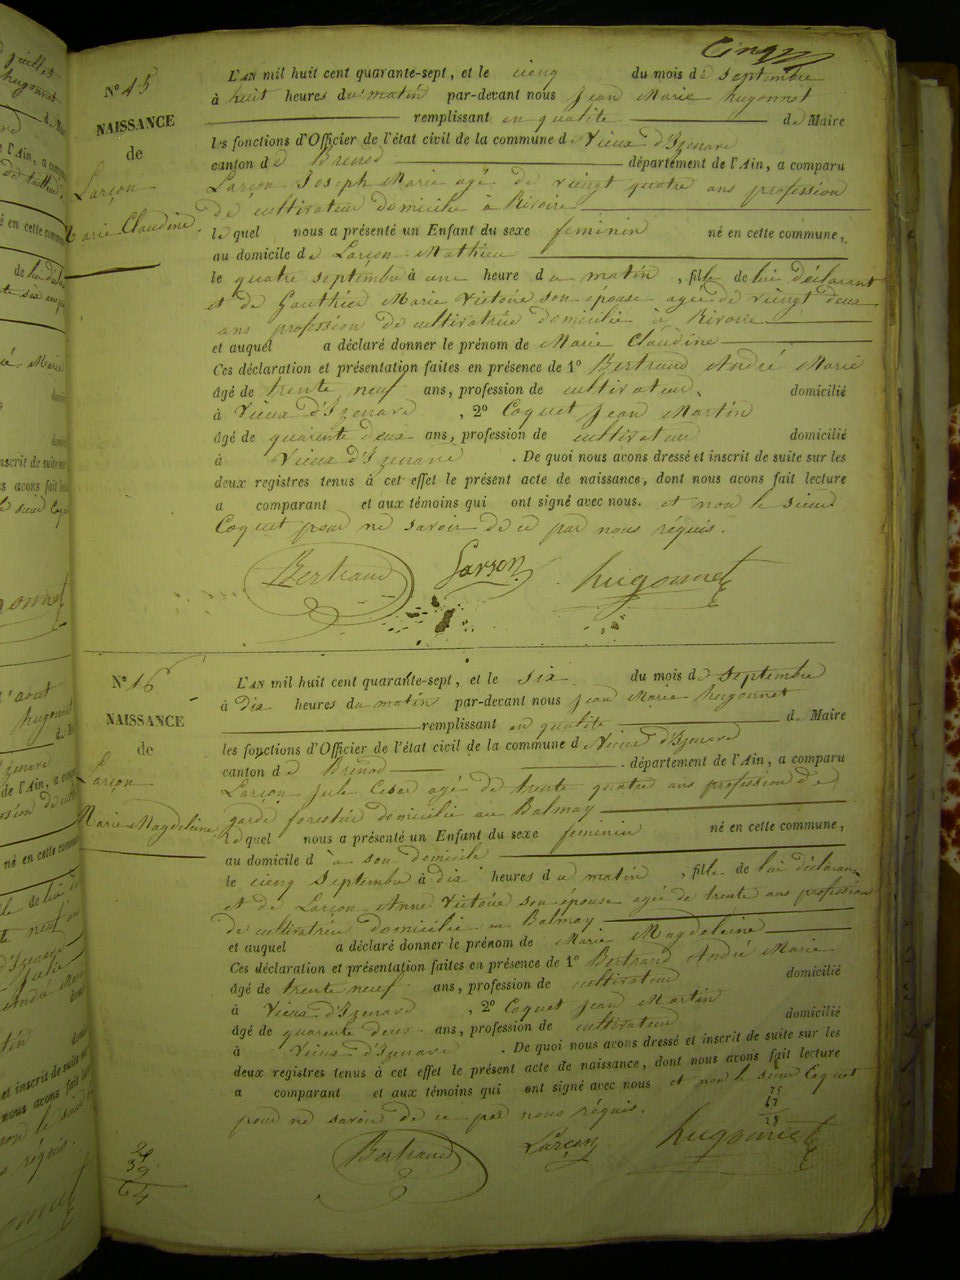 Cinq
N° 15
NAISSANCE
de
Larçon
Marie Claudine
L'AN mil huit cent quarante-sept, et le cinq du mois de septembre
à huit heures du matin par-devant nous jean Marie hugonnet
remplissant en qualité de Maire
les fonctions d'Officier de l'état civil de la commune de Vieux d'Izenave
canton de Brenod département de l'Ain, a comparu
Larçon Joseph Marie agé de vingt quatre ans profession
de cultivateur domicilié a Rivoire
le quel nous a présenté un Enfant du sexe feminin né en cette commune,
au domicile de Larçon Mathieu
le quatre septembre à une heure du matin, fille de lui déclarant
et de Gauthier Marie Victoire son épouse agée de vingt deux
ans profession de cultivatrice domiciliée à Rivoire
et auquel a déclaré donner le prénom de Marie Claudine
Ces déclaration et présentation faites en présence de 1° Bertrand André Marie
âgé de trente neuf ans, profession de cultivateur, domicilié
à Vieux d'Izenave, 2° Coquet jean Martin
âgé de quarante deux ans, profession de cultivateur domicilié
à Vieux d'Izenave. De quoi nous avons dressé et inscrit de suite sur les
deux registres tenus à cet effet le présent acte de naissance, dont nous avons fait lecture
a comparant et aux témoins qui ont signé avec nous. et non le sieur
Coquet pour ne savoir de ce par nous réquis.
Bertrand Larçon hugonnet
N° 16
NAISSANCE
de
Larçon
Marie Magdeleine
L'AN mil huit cent quarante-sept, et le six du mois de septembre
à dix heures du matin par-devant nous jean Marie hugonnet
remplissant en qualité de Maire
les fonctions d'Officier de l'état civil de la commune de Vieux d'Izenave
canton de Brenod département de l'Ain, a comparu
Larçon jule Cesar agé de trente quatre ans profession de
garde forestier domicilié au Balmay
le quel nous a présenté un Enfant du sexe feminin né en cette commune,
au domicile d à son domicile
le cinq Septembre à dix heures du matin, fille de lui déclarant
et de Larçon Anne Victoire son épouse agée de trente ans profession
de cultivatrice domiciliée au Balmay
et auquel a déclaré donner le prénom de Marie Magdeleine
Ces déclaration et présentation faites en présence de 1° Bertrand André Marie
âgé de trente neuf ans, profession de cultivateur domicilié
à Vieux d'Izenave, 2° Coquet jean Martin
âgé de quarante deux ans, profession de cultivateur domicilié
à Vieux d'Izenave. De quoi nous avons dressé et inscrit de suite sur les
deux registres tenus à cet effet le présent acte de naissance, dont nous avons fait lecture
a comparant et aux témoins qui ont signé avec nous et non le sieur Coquet
pour ne savoir de ce par nous réquis.
Bertrand Larçon hugonnet